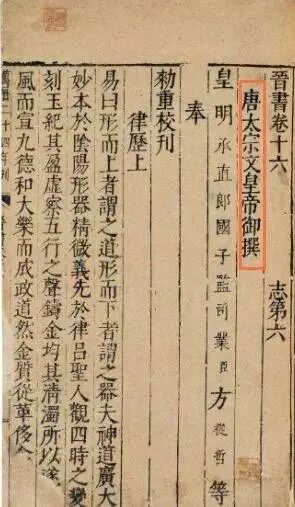 晉書卷十六　志第六
唐太宗文皇帝御撰
皇明承直郎國子監司業臣方從哲等
奉
勑重校刊
律歷上
易曰形而上者謂之道形而下者謂之器夫神道廣大
妙本於陰陽形器精微義先於律呂聖人觀四時之變
刻玉紀其盈虛察五行之聲鑄金均其清濁所以遂
風而宣九德和大樂而成政道然金質從革侈弇